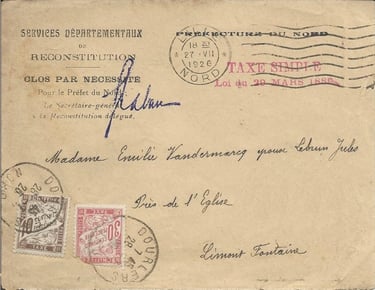 SERVICES DÉPARTEMENTAUX
DE
RECONSTITUTION
CLOS PAR NÉCESSITÉ
Pour le Préfet du Nord
Le Secrétaire-général
à la Reconstitution délégué,
PRÉFECTURE DU NORD
LILLE
18 30
27 - VII
1926
NORD
TAXE SIMPLE
Loi du 29 MARS 1889
Madame Emilie Vandermarcq épouse Lebrun Jules
Près de l'Eglise
Limont Fontaine
DOURLERS
28
TAXE
10
DOURLERS
28
TAXE
30